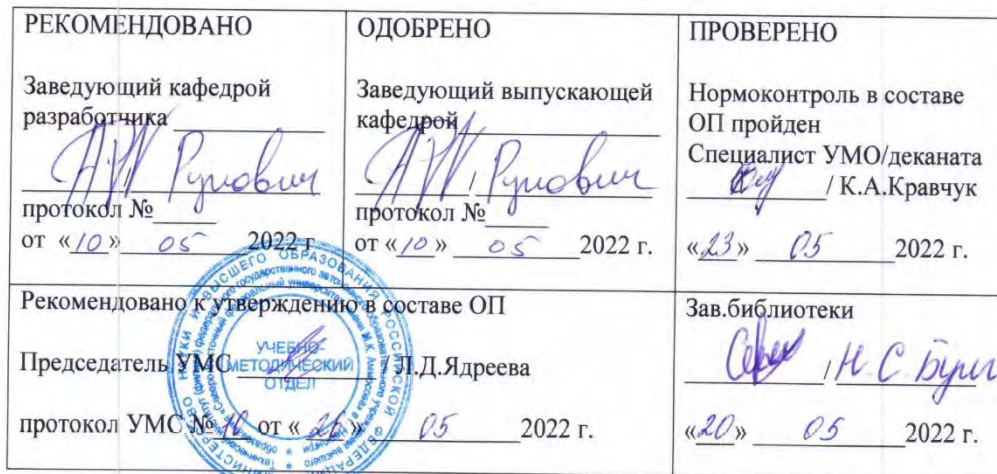 РЕКОМЕНДОВАНО
Заведующий кафедрой
разработчика
протокол №
от «10» 05 2022 г
ОДОБРЕНО
Заведующий выпускающей
кафедрой
/
протокол №
от «10» 05 2022 г.
ПРОВЕРЕНО
Нормоконтроль в составе
ОП пройден
Специалист УМО/деканата
/ К.А.Кравчук
«23» 05 2022 г.
Рекомендовано к утверждению в составе ОП
Председатель УМС / Л.Д.Ядреева
протокол УМС № от «26» 05 2022 г.
УЧЕБНО-
МЕТОДИЧЕСКИЙ
ОТДЕЛ
Зав.библиотеки
/ Н.С.
«20» 05 2022 г.